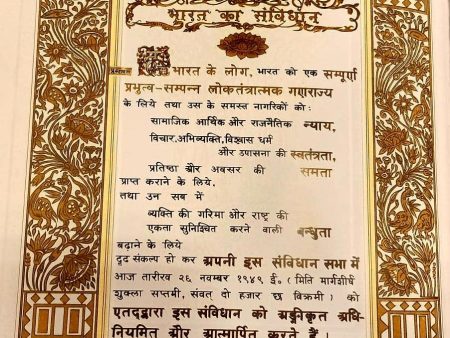 भारत का संविधान
उद्देशिका
हम, भारत के लोग, भारत को एक सम्पूर्ण
प्रभुत्व-सम्पन्न लोकतंत्रात्मक गणराज्य
के लिये तथा उस के समस्त नागरिकों को:
सामाजिक आर्थिक और राजनैतिक न्याय,
विचार,अभिव्यक्ति,विश्वास धर्म
और उपासना की स्वतंत्रता,
प्रतिष्ठा और अवसर की समता
प्राप्त कराने के लिये,
तथा उन सब में
व्यक्ति की गरिमा और राष्ट्र की
एकता सुनिश्चित करने वाली बन्धुता
बढ़ाने के लिये
दृढ़ संकल्प हो कर अपनी इस संविधान सभा में
आज तारीख २६ नवम्बर १९४९ ई. (मिति मार्गशीर्ष
शुक्ला सप्तमी, संवत् दो हजार छ विक्रमी) को
एतद्द्वारा इस संविधान को अङ्गीकृत अधि-
नियमित और आत्मार्पित करते हैं।